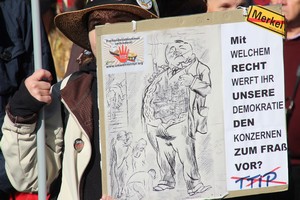 Merkel
Mit
WELCHEM
RECHT
WERFT IHR
UNSERE
DEMOKRATIE
DEN
KONZERNEN
ZUM FRAß
VOR?
TTIP